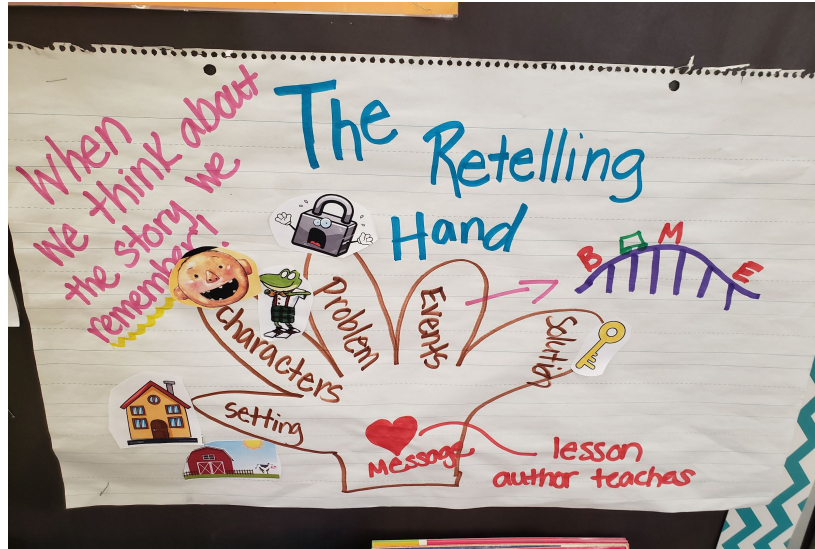 When
we think about
the story we
remember!
The
Retelling
Hand
B
M
E
Characters
Problem
Events
Solution
setting
Message
lesson
author teaches